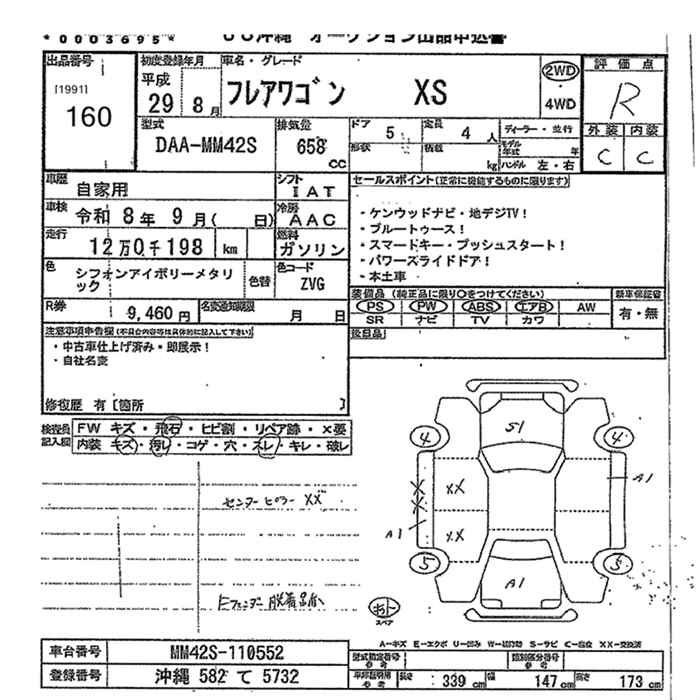 *0003695*
ＵＳ沖縄 オークション出品申込書
出品番号
[1991]
160
初度登録年月
平成
29年 8月
車名・グレード
フレアワゴン XS
2WD
4WD
評価点
R
外装 内装
C C
型式
DAA-MM42S
排気量
658 cc
ドア 5
形状
定員 4 人
積載 kg
ディーラー・並行
モデル年式 年
ハンドル 左・右
車歴
自家用
シフト
IAT
車検
令和 8年 9月( 日)
冷房
AAC
走行
12万0千198 km
燃料
ガソリン
色
シフォンアイボリーメタリック
色替
色コード
ZVG
R券
9,460円
名変通知期限
月 日
セールスポイント(正常に機能するものに限ります)
・ケンウッドナビ・地デジTV!
・ブルートゥース!
・スマートキー・プッシュスタート!
・パワースライドドア!
・本土車
装備品(純正品に限り○をつけてください)
PS PW ABS エアB AW
SR ナビ TV カワ
新車保証書
有・無
後日品
注意事項申告欄(不具合内容等は具体的に記入して下さい)
・中古車仕上げ済み・即展示!
・自社名変
修復歴 有[箇所 ]
検査員記入欄
FW キズ・飛石・ヒビ割・リペア跡・×要
内装 キズ・汚レ・コゲ・穴・スレ・キレ・破レ
センターピラー XX
Fフェンダー 脱着
4 S1 4
XX
A1
X
X
XX
A1
5 A1 5
スペア
A-キズ E-エクボ U-凹み W-補修跡 S-サビ C-腐食 X X-交換済
車台番号
MM42S-110552
登録番号
沖縄 582 て 5732
型式指定番号
参考
類別区分番号
参考
車庫証明用
参考
長さ 339 cm
幅 147 cm
高さ 173 cm